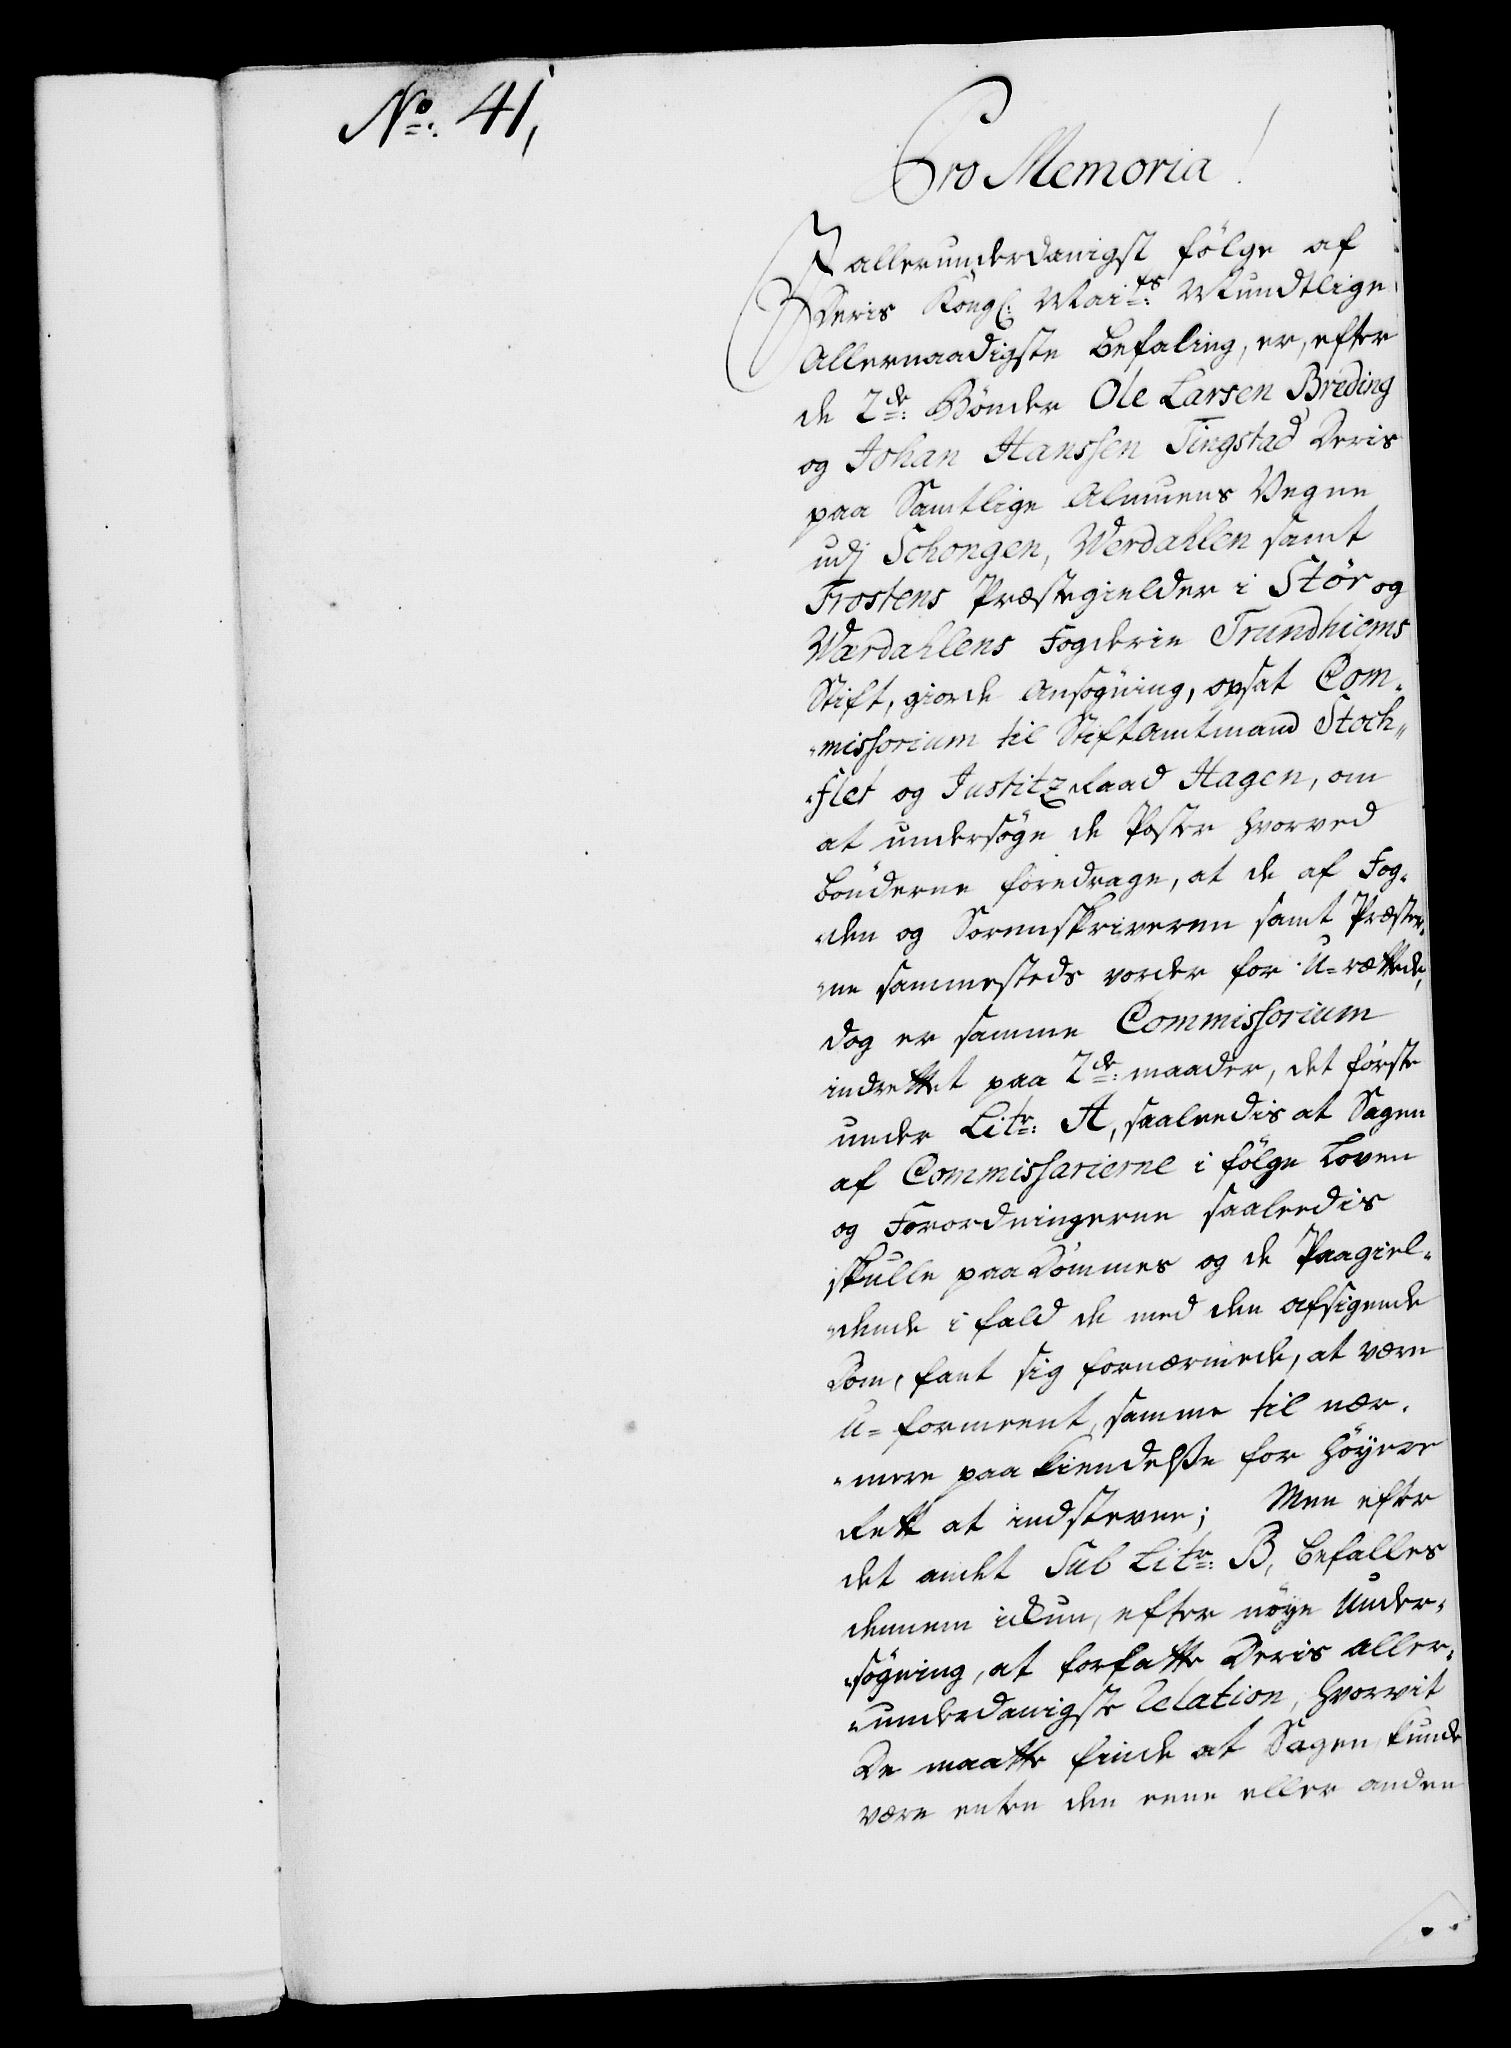 No: 41,
Pro Memoria!
I allerunderdanigst følge af
Deris Kongl: Mai:ts Mundtlige
Allernaadigste Befaling, er, efter
de 2de: Bönder Ole Larsen Breding
og Johan Hanssen Tingstad Deris
paa Samtlige Almuens Vegne
udj Schongen, Werdahlen samt
Frostens Præstegielder i Stör og
Wærdahlens Fogderie Trundhiems
Stift, giorde Ansøgning, opsat Com-
missorium til Stiftamtmand Stoch-
flet og Justitz Raad Hagen, om
at undersøge de Poster hvorved
Bönderne foredrage, at de af Fog-
den og Sorenskriveren samt Præster-
ne sammesteds vorder for U-rettede,
dog er samme Commissorium
indrettet paa 2de: maader, det første
under Litr: A, saaledis at Sagen
af Commissarierne i følge Loven
og Forordningerne saaledis
skulle paa Dömmes og de Paagiel-
dende i fald de med den afsigende
Dom, fant sig fornærmede, at være
U-formeent, samme til nær-
mere paa Kiendelsse for höyere
Rett at indstevne; Men efter
det andet Sub Litr: B, befalles
dennem ickun, efter nöye Under-
søgning, at forfatte Deris aller-
underdanigste Relation, hvorvit
De maatte finde at Sagen kunde
være enten den eene eller anden